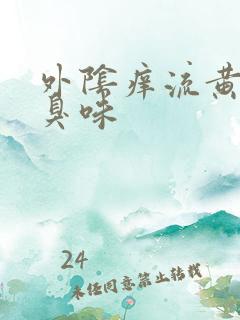 外陰痒流黄
臭味
24
未经同意禁止转载